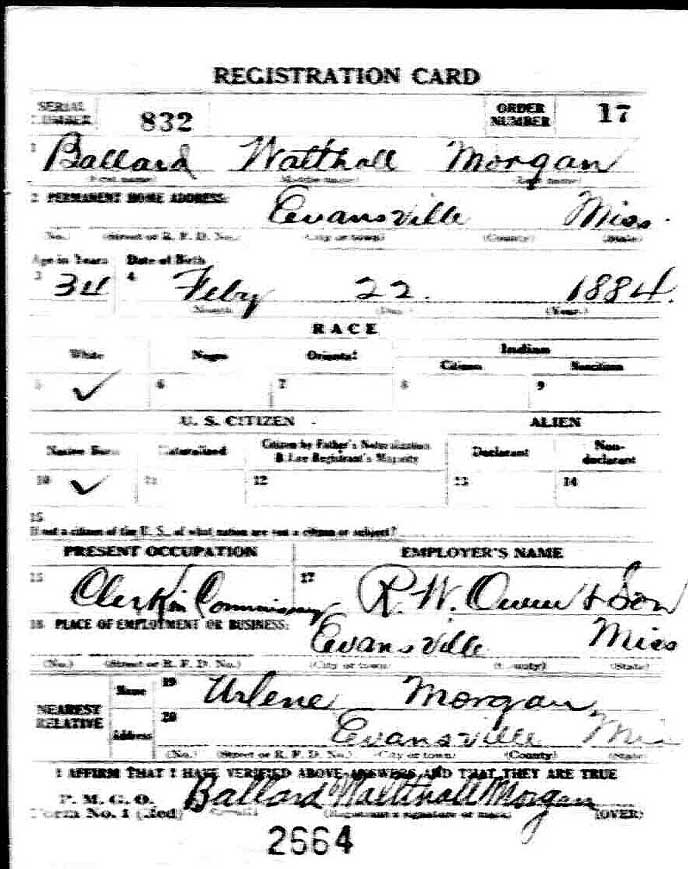 REGISTRATION CARD
SERIAL NUMBER 832 ORDER NUMBER 17
1 Ballard Walthall Morgan
(First name) (Middle name) (Last name)
2 PERMANENT HOME ADDRESS:
Evansville Miss.
(No.) (Street or R. F. D. No.) (City or town) (County) (State)
Age in Years Date of Birth
3 34 4 Feby 22. 1884.
(Month) (Day) (Year)
RACE
White Negro Oriental Indian
Citizen Noncitizen
5 ✓ 6 7 8 9
U. S. CITIZEN ALIEN
Native Born Naturalized Citizen by Father's Naturalization Before Registrant's Majority Declarant Non-declarant
10 ✓ 11 12 13 14
15
If not a citizen of the U. S., of what nation are you a citizen or subject?
PRESENT OCCUPATION EMPLOYER'S NAME
16 Clerk in Commissary 17 R. W. Owen & Son
18 PLACE OF EMPLOYMENT OR BUSINESS:
Evansville Miss
(No.) (Street or R. F. D. No.) (City or town) (County) (State)
NEAREST RELATIVE
Name 19 Urlene Morgan
Address 20 Evansville Miss
(No.) (Street or R. F. D. No.) (City or town) (County) (State)
I AFFIRM THAT I HAVE VERIFIED ABOVE ANSWERS AND THAT THEY ARE TRUE
P. M. G. O.
Form No. 1 (Red) Ballard Walthall Morgan
(Registrant's signature or mark) (OVER)
2664